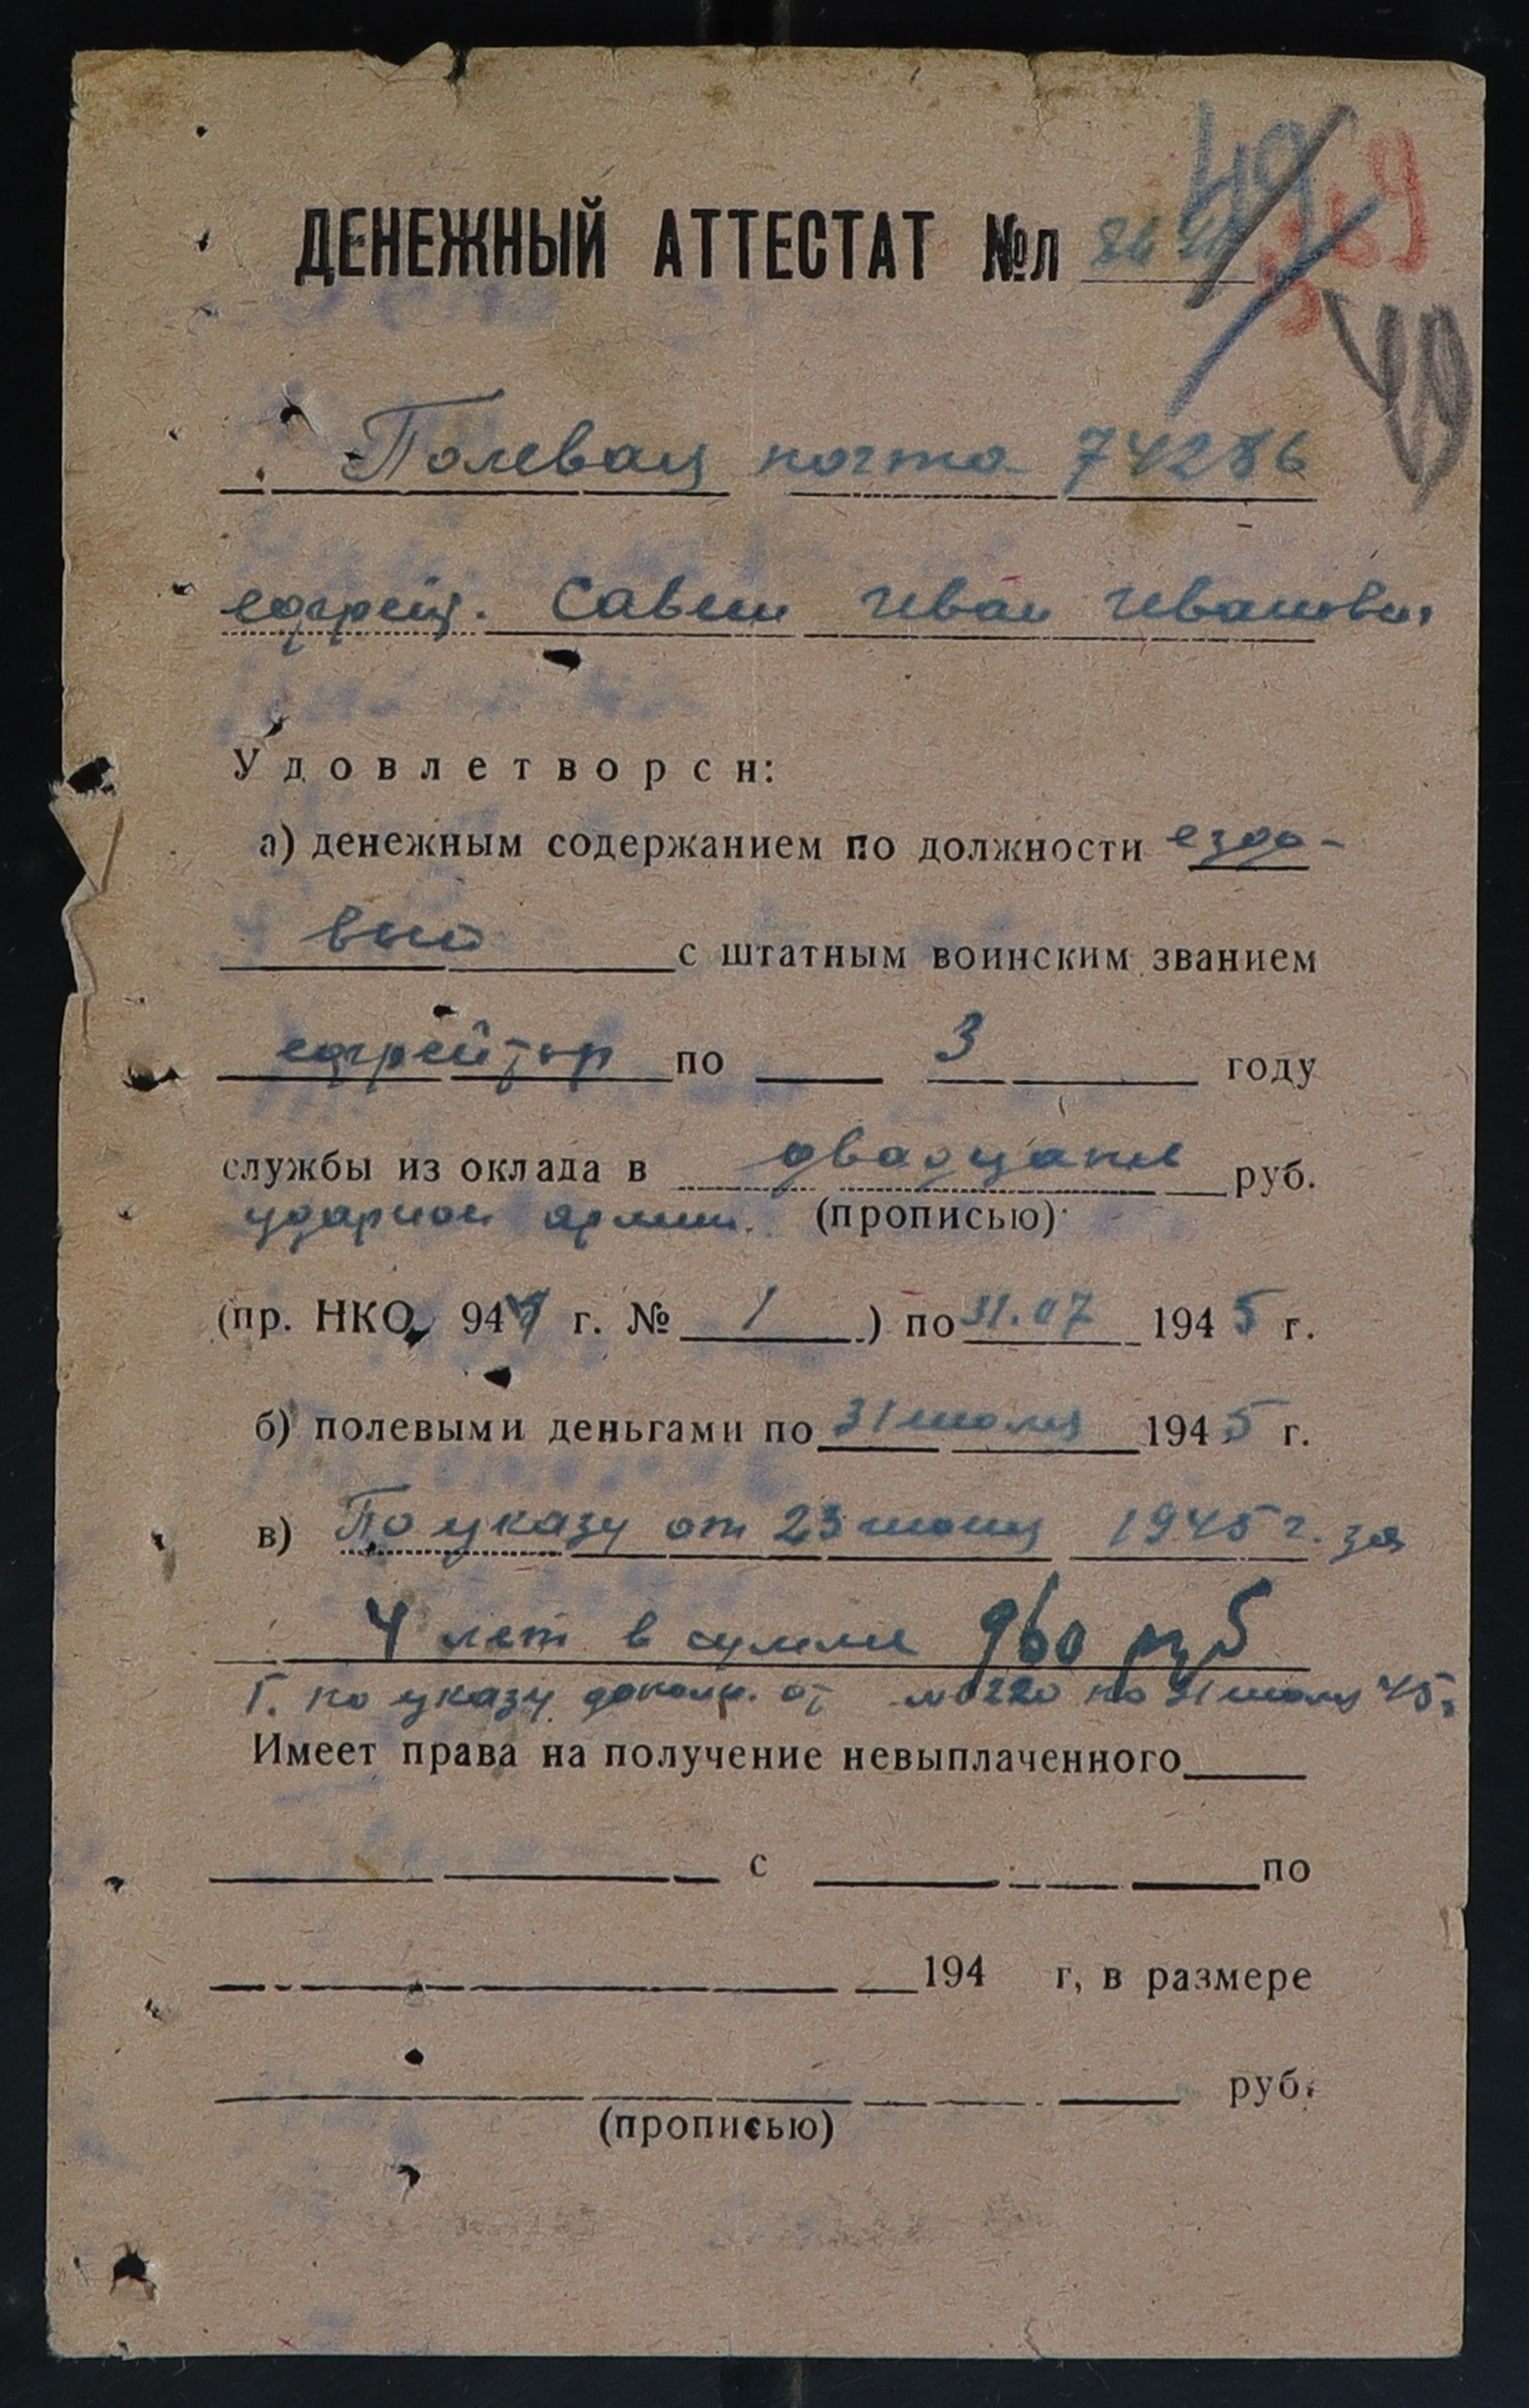 49
369
49
ДЕНЕЖНЫЙ АТТЕСТАТ №л
Полевая почта 74286
ефрейт. Савин Иван Иванович
Удовлетворен:
а) денежным содержанием по должности ездо-
вый с штатным воинским званием
ефрейтор по 3 году
службы из оклада в двадцать руб.
ударной армии. (прописью)
(пр. НКО, 944 г. № 1 ) по 31.07 1945 г.
б) полевыми деньгами по 31 июля 1945 г.
в) По указу от 23 июня 1945 г. за
4 лет в сумме 960 руб
Г. по указу от №0220 по 31 июля 45г
Имеет права на получение невыплаченного
с по
194 г, в размере
руб.
(прописью)